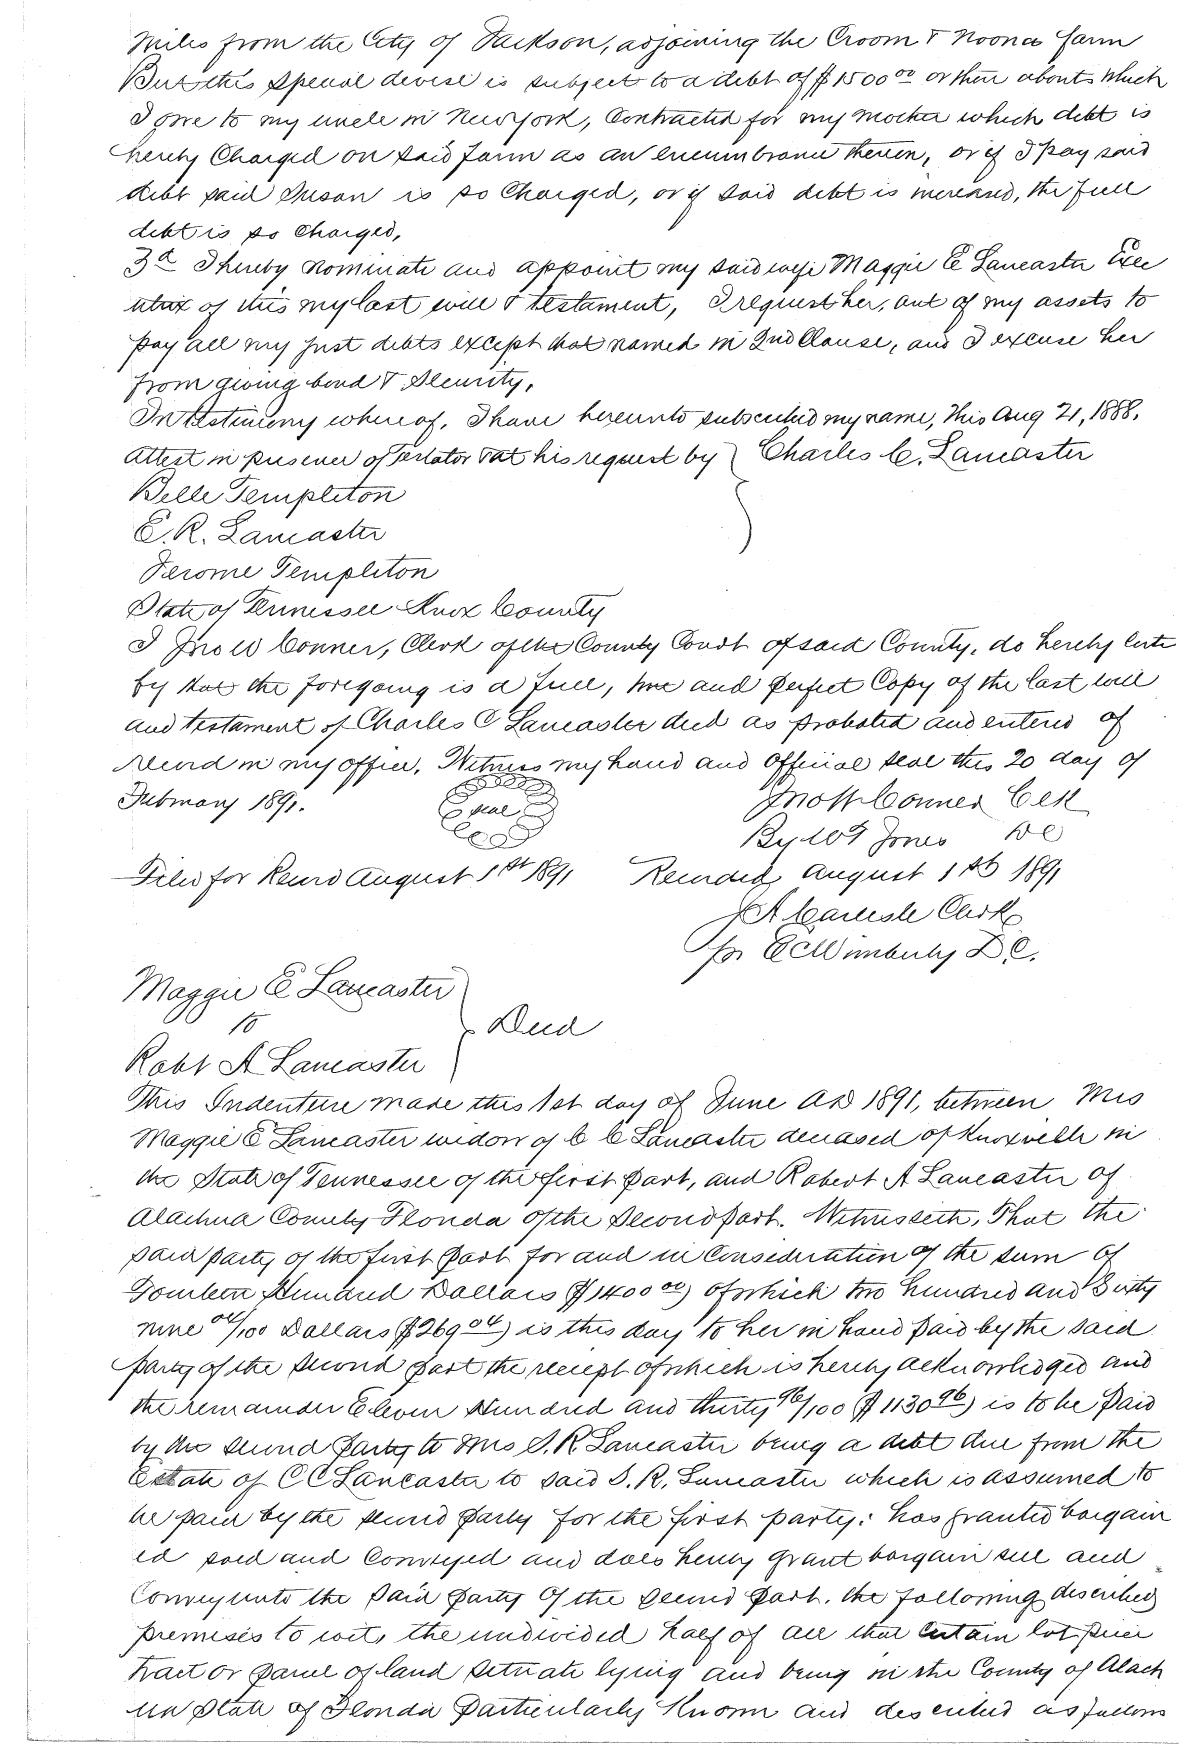 Miles from the City of Jackson, adjoining the Croom & Noonan farm
But this special devise is subject to a debt of $1500 00 or there abouts which
I owe to my uncle in New York, Contracted for my mother which debt is
hereby Charged on said farm as an encumbrance therein, or if I pay said
debt said Susan is so Charged, or if said debt is increased, the full
debt is so charged,
3d I hereby nominate and appoint my said wife Maggie E Lancaster Exec
utrix of this my last will & testament, I request her, out of my assets to
pay all my just debts except that named in 2nd Clause, and I excuse her
from giving bond & Security,
In testimony where of, I have hereunto subscribed my name, This Aug 21, 1888.
Attest in presence of Testator & at his request by } Charles C. Lancaster
Belle Templeton
E. R. Lancaster
Jerome Templeton
State of Tennessee Knox County
I Jno W Conner, Clerk of the County Court of said County, do hereby Certi
fy that the foregoing is a full, true and perfect Copy of the last will
and testament of Charles C Lancaster decd as probated and entered of
record in my office. Witness my hand and Official seal this 20 day of
February 1891. Seal Jno W Conner Clk
By W T Jones DC
Filed for Record August 1st 1891 Recorded August 1st 1891
J A Carlisle Clerk
pr E C Wimberly D.C.
Maggie E Lancaster
to } Deed
Robt A Lancaster
This Indenture made this 1st day of June AD 1891, between Mrs
Maggie E Lancaster widow of C C Lancaster deceased of Knoxville in
the State of Tennessee of the first part, and Robert A Lancaster of
Alachua County Florida of the Second part. Witnesseth, That the
said party of the first part for and in Consideration of the sum of
Fourteen Hundred Dollars ($1400 00) of which two hundred and Sixty
nine 04/100 Dollars ($269 04) is this day to her in hand paid by the said
party of the second part the reciept of which is hereby acknowledged and
the remainder Eleven Hundred and thirty 96/100 ($1130 96) is to be paid
by the second party to Mrs S. R Lancaster being a debt due from the
Estate of C C Lancaster to said S. R. Lancaster which is assumed to
be paid by the second party for the first party: has granted bargain
ed sold and Conveyed and does hereby grant bargain sell and
Convey unto the said party of the second part, the following described
premises to wit, the undivided half of all that certain lot piece
tract or parcel of land situate lying and being in the County of Alach
ua State of Florida Particularly Known and described as follows